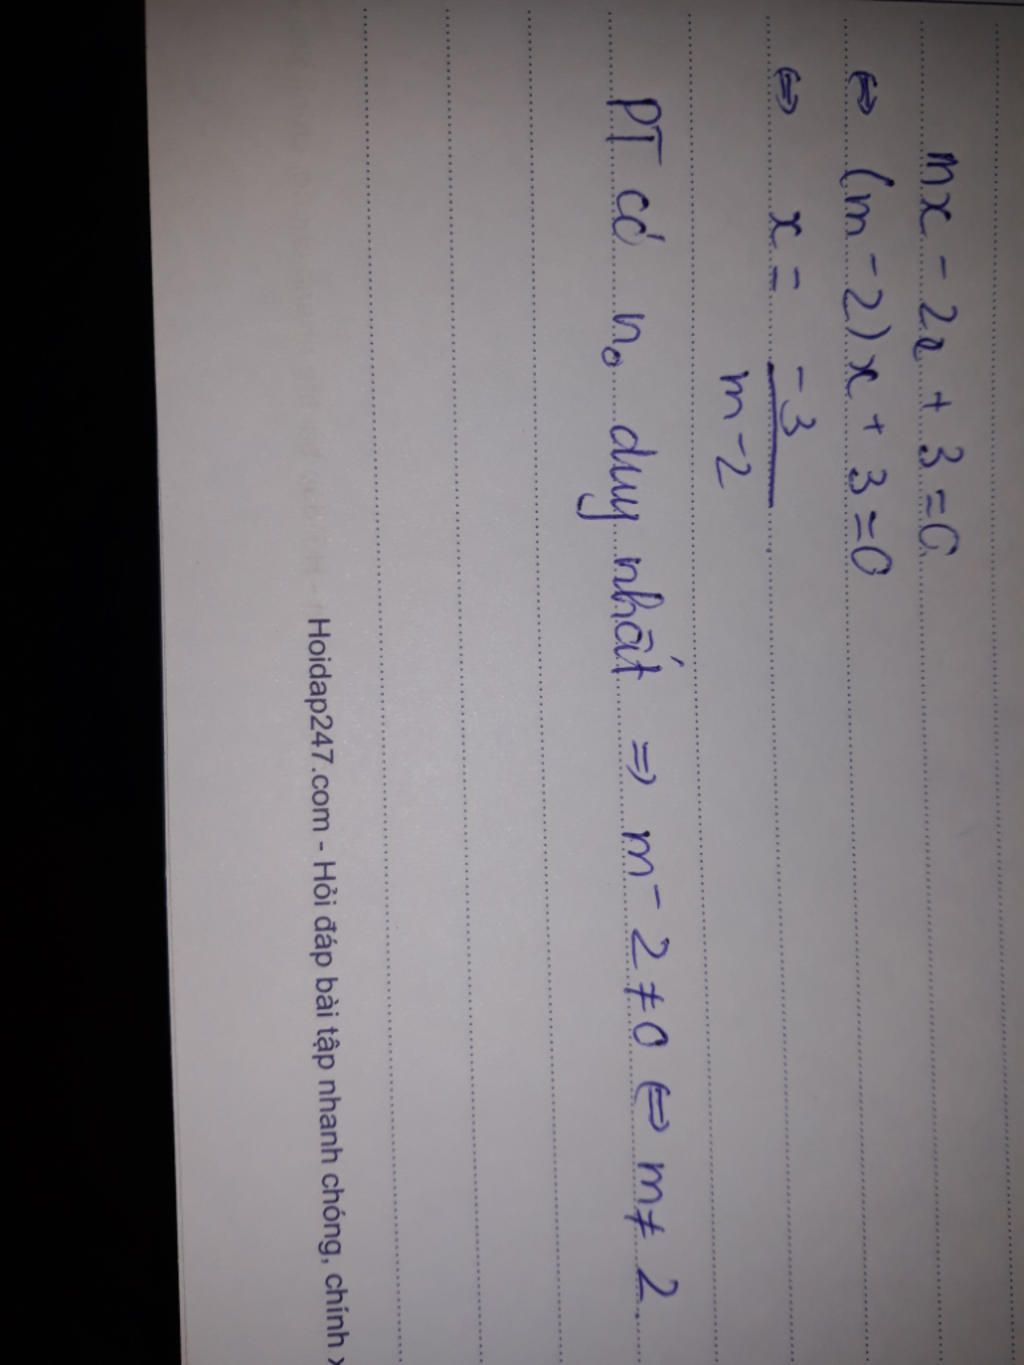 mx - 2x + 3 = 0
⇔ (m - 2)x + 3 = 0
⇔ x = -3 / m - 2
PT có n₀ duy nhất ⇒ m - 2 ≠ 0 ⇔ m ≠ 2.
Hoidap247.com - Hỏi đáp bài tập nhanh chóng, chính